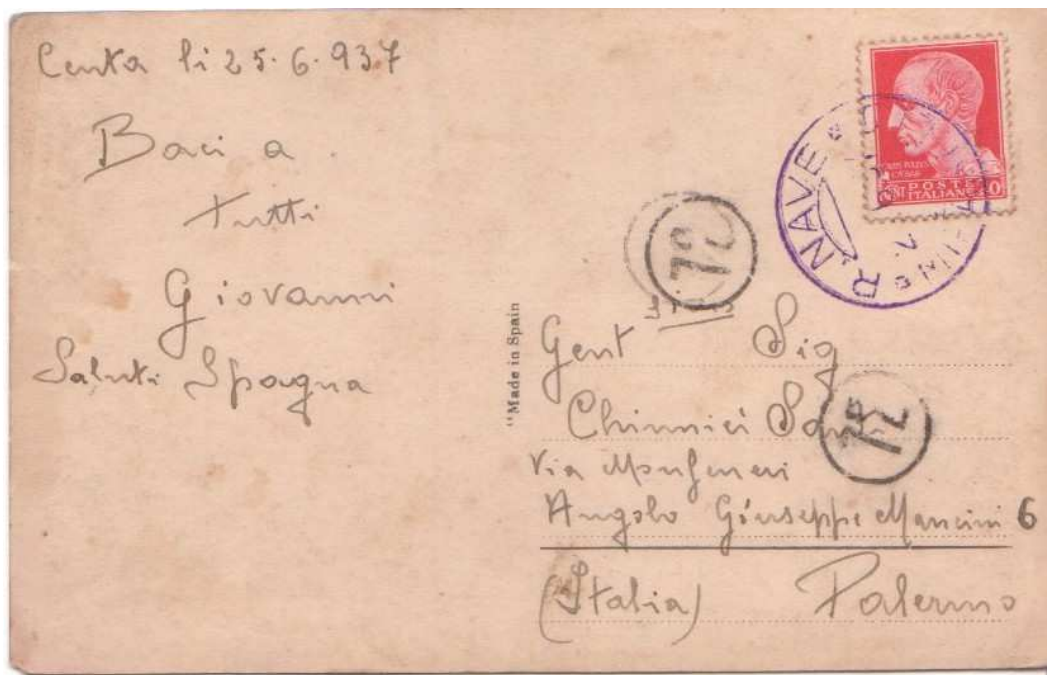 Ceuta li 25·6·937
Baci a
tutti
Giovanni
Saluti Spagna
"Made in Spain
POSTE
ITALIANE
R. NAVE
Gent Sig
Chinnici
Via
Angolo Giuseppe Mancini 6
(Italia) Palermo